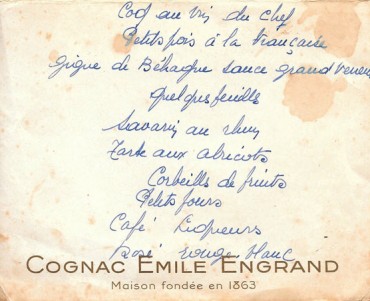 Coq au vin du chef
Petits pois à la française
gigue de Béhague sauce grand veneur
quelques feuilles
Savarin au rhum
Tarte aux abricots
Corbeilles de fruits
Petits fours
Café Liqueurs
Rosé rouge blanc
COGNAC EMILE ENGRAND
Maison fondée en 1863